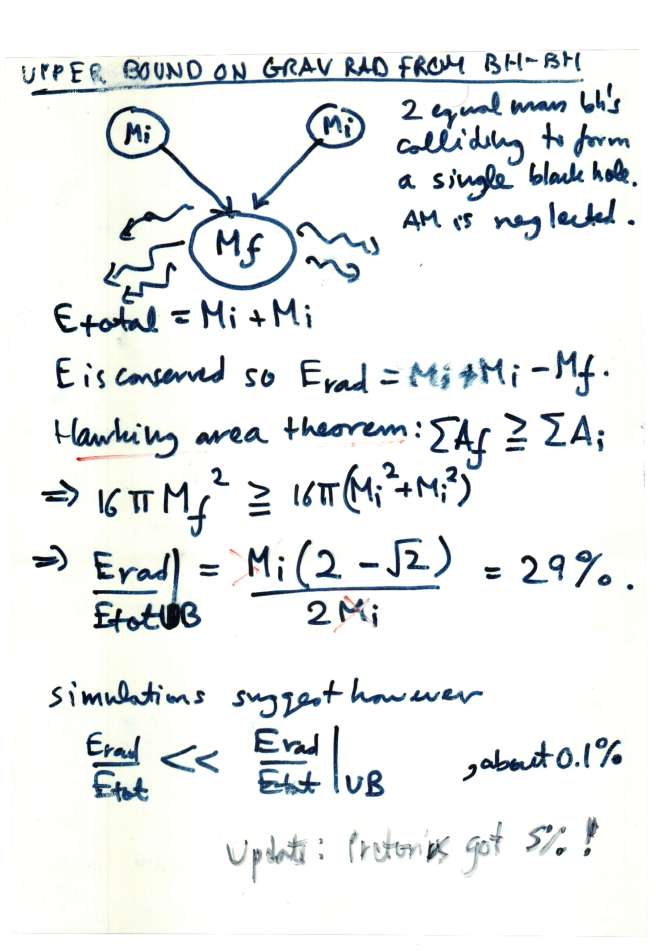 UPPER BOUND ON GRAV RAD FROM BH-BH
Mi
Mi
Mf
2 equal mass bh's
colliding to form
a single black hole.
AM is neglected.
Etotal = Mi + Mi
E is conserved so Erad = Mi + Mi - Mf.
Hawking area theorem: ΣAf ≧ ΣAi
⇒ 16πMf² ≧ 16π(Mi²+Mi²)
⇒ Erad/Etot|UB = Mi(2-√2)/2Mi = 29%.
simulations suggest however
Erad/Etot << Erad/Etot|UB , about 0.1%
Update: Pretorius got 5%!